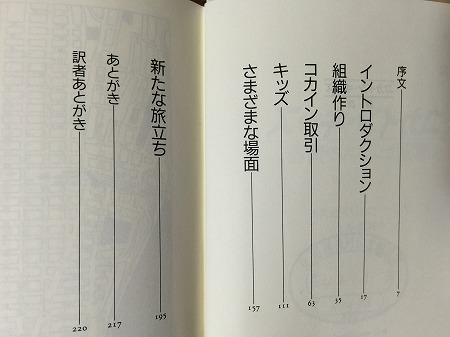 序文 7
イントロダクション 17
組織作り 35
コカイン取引 63
キッズ 111
さまざまな場面 157
新たな旅立ち 195
あとがき 217
訳者あとがき 220